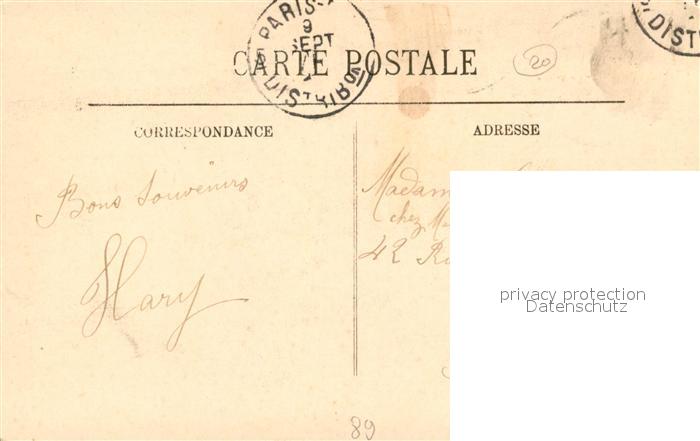 PARIS
9
SEPT
DISTRIBON
DISTR
CARTE POSTALE
20
CORRESPONDANCE
ADRESSE
Bons Souvenirs
Hary
Madam
chez M
42 R
privacy protection
Datenschutz
89